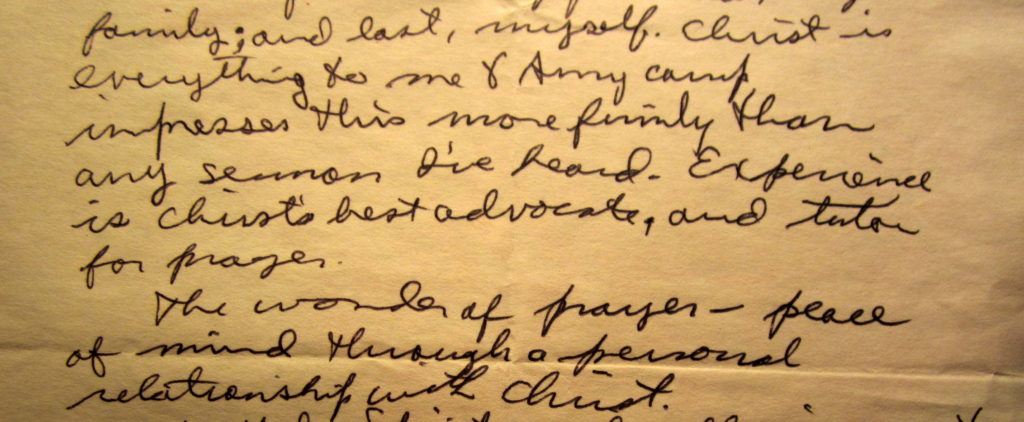 family; and last, myself. Christ is
everything to me & Army camp
impresses this more firmly than
any sermon I've heard. Experience
is Christ's best advocate, and tutor
for prayer.
The wonder of prayer - peace
of mind through a personal
relationship with Christ.